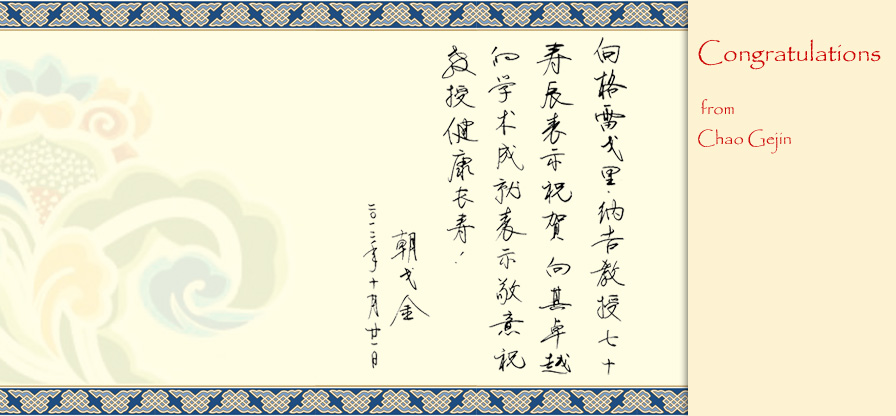 向格雷戈里·纳吉教授七十
寿辰表示祝贺 向其卓越
的学术成就表示敬意 祝
教授健康长寿！
朝戈金
二〇一二年十月廿一日
Congratulations
from
Chao Gejin